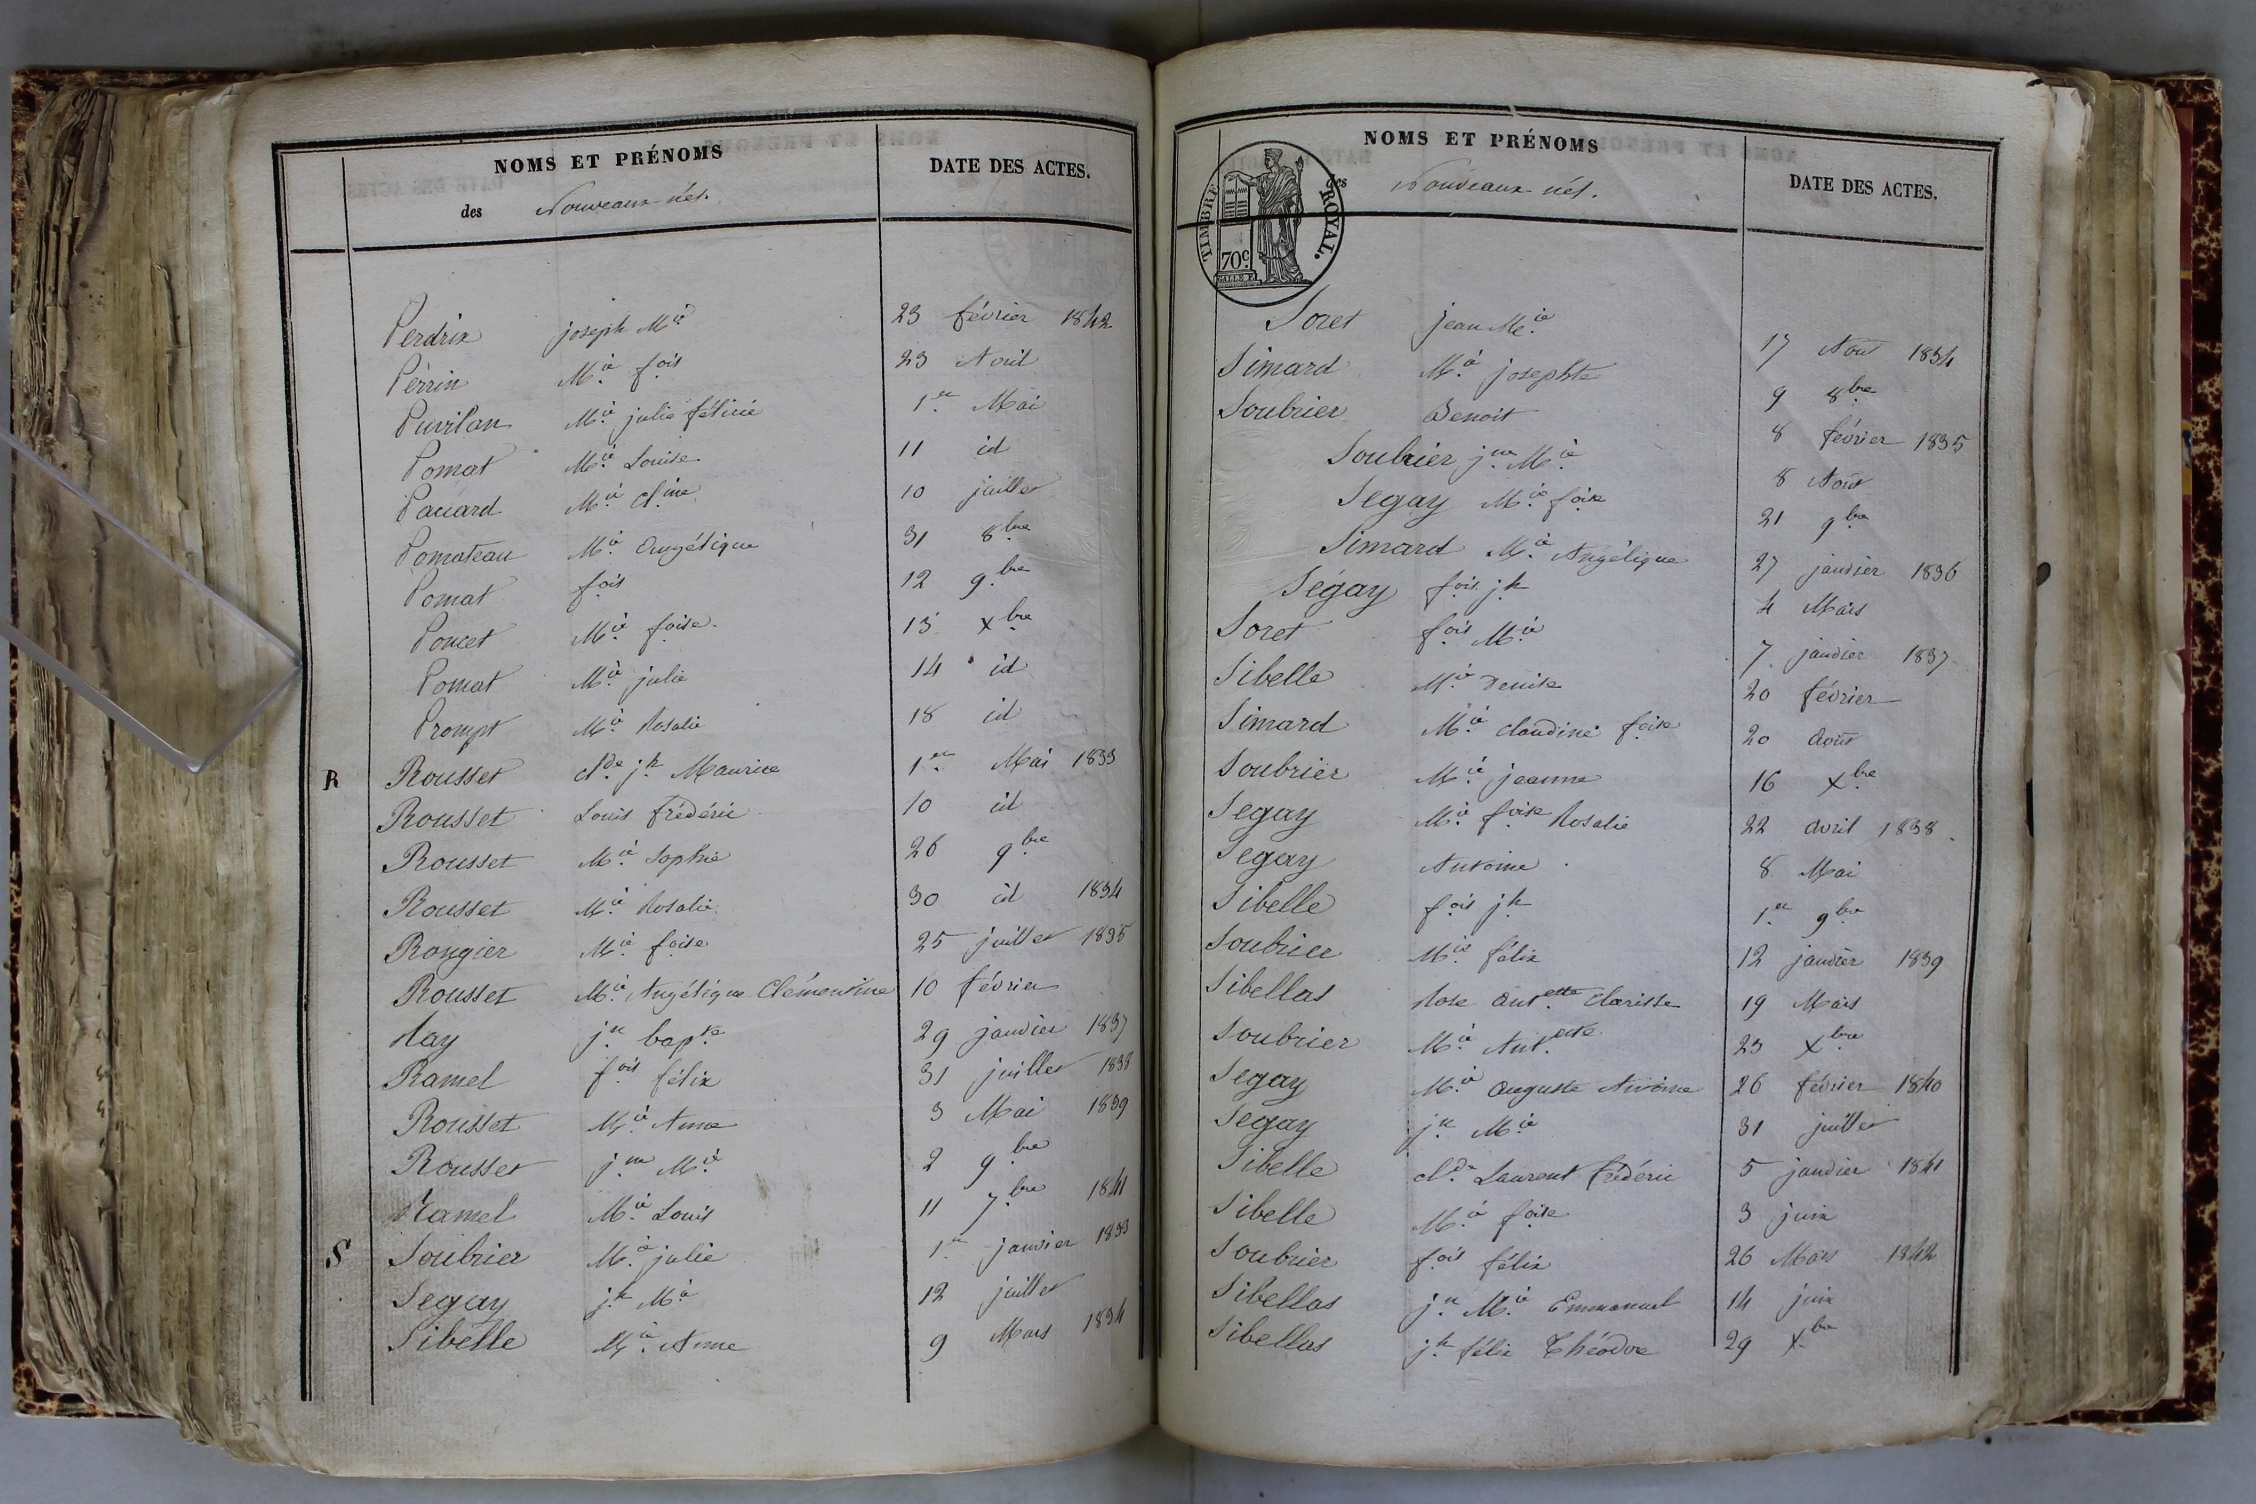 NOMS ET PRÉNOMS
DATE DES ACTES.
des Nouveaux-nés.
Perdrix joseph M.ie 23 février 1842
Pérrin M.ie f.ois 23 Avril
Puvilan M.ie julie félicie 1.er Mai
Pomat M.ie Louise 11 id
Pacard M.ie cl.ine 10 juillet
Pomateau M.ie Angélique 31 8.bre
Pomat f.ois 12 9.bre
Poncet M.ie f.oise 13 X.bre
Pomat M.ie julie 14 id
Prompt M.ie Rosalie 18 id
R Rousset cl.de j.h Maurice 1.er Mai 1833
Rousset Louis frédéric 10 id
Rousset M.ie Sophie 26 9.bre
Rousset M.ie Rosalie 30 id 1834
Rougier M.ie f.oise 25 juillet 1835
Rousset M.ie Angélique Clémentine 10 février
Ray j.n bap.te 29 janvier 1837
Ramel f.ois félix 31 juillet 1838
Rousset M.ie Anne 3 Mai 1839
Rousset j.ne M.ie 2 9.bre
Ramel M.ie Louis 11 7.bre 1841
S Soubrier M.ie julie 1.er janvier 1833
Segay j.h M.ie 12 juillet
Sibelle M.ie Anne 9 Mars 1834
NOMS ET PRÉNOMS
DATE DES ACTES.
des Nouveaux-nés.
TIMBRE ROYAL.
70c.
Soret jean M.ie 17 Aout 1834
Simard M.ie josephte 9 8.bre
Soubrier Benoit 8 février 1835
Soubrier j.ne M.ie 8 Août
Segay M.ie f.oise 21 9.bre
Simard M.ie Angélique 27 janvier 1836
Ségay f.ois j.h 4 Mars
Soret f.ois M.ie 7 janvier 1837
Sibelle M.ie Denise 20 février
Simard M.ie claudine f.oise 20 août
Soubrier M.ie jeanne 16 X.bre
Segay M.ie f.oise Rosalie 22 avril 1838
Segay Antoine 8 Mai
Sibelle f.ois j.h 1.er 9.bre
Soubrier M.ie félix 12 janvier 1839
Sibellas Rose Ant.ette Clarisse 19 Mars
Soubrier M.ie Ant.ette 23 X.bre
Segay M.ie Auguste Antoine 26 février 1840
Segay j.n M.ie 31 juillet
Sibelle cl.de Laurent frédéric 5 janvier 1841
Sibelle M.ie f.oise 3 juin
Soubrier f.ois félix 26 Mars 1842
Sibellas j.n M.ie Emmanuel 14 juin
Sibellas j.h félix Théodore 29 X.bre